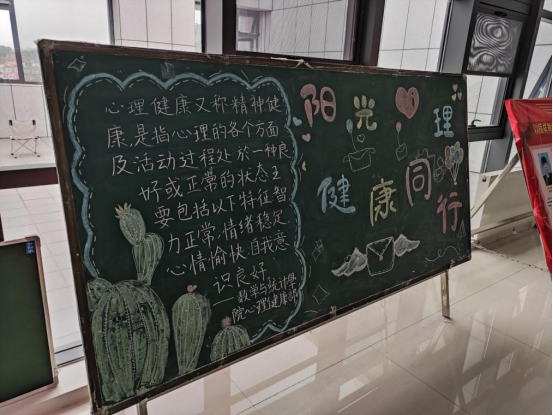 心理健康又称精神健
康,是指心理的各个方面
及活动过程处於一种良
好或正常的状态主
要包括以下特征智
力正常情绪稳定
心情愉快自我意
识良好
——数学与统计學
院心理健康部
阳光 理
健康同行